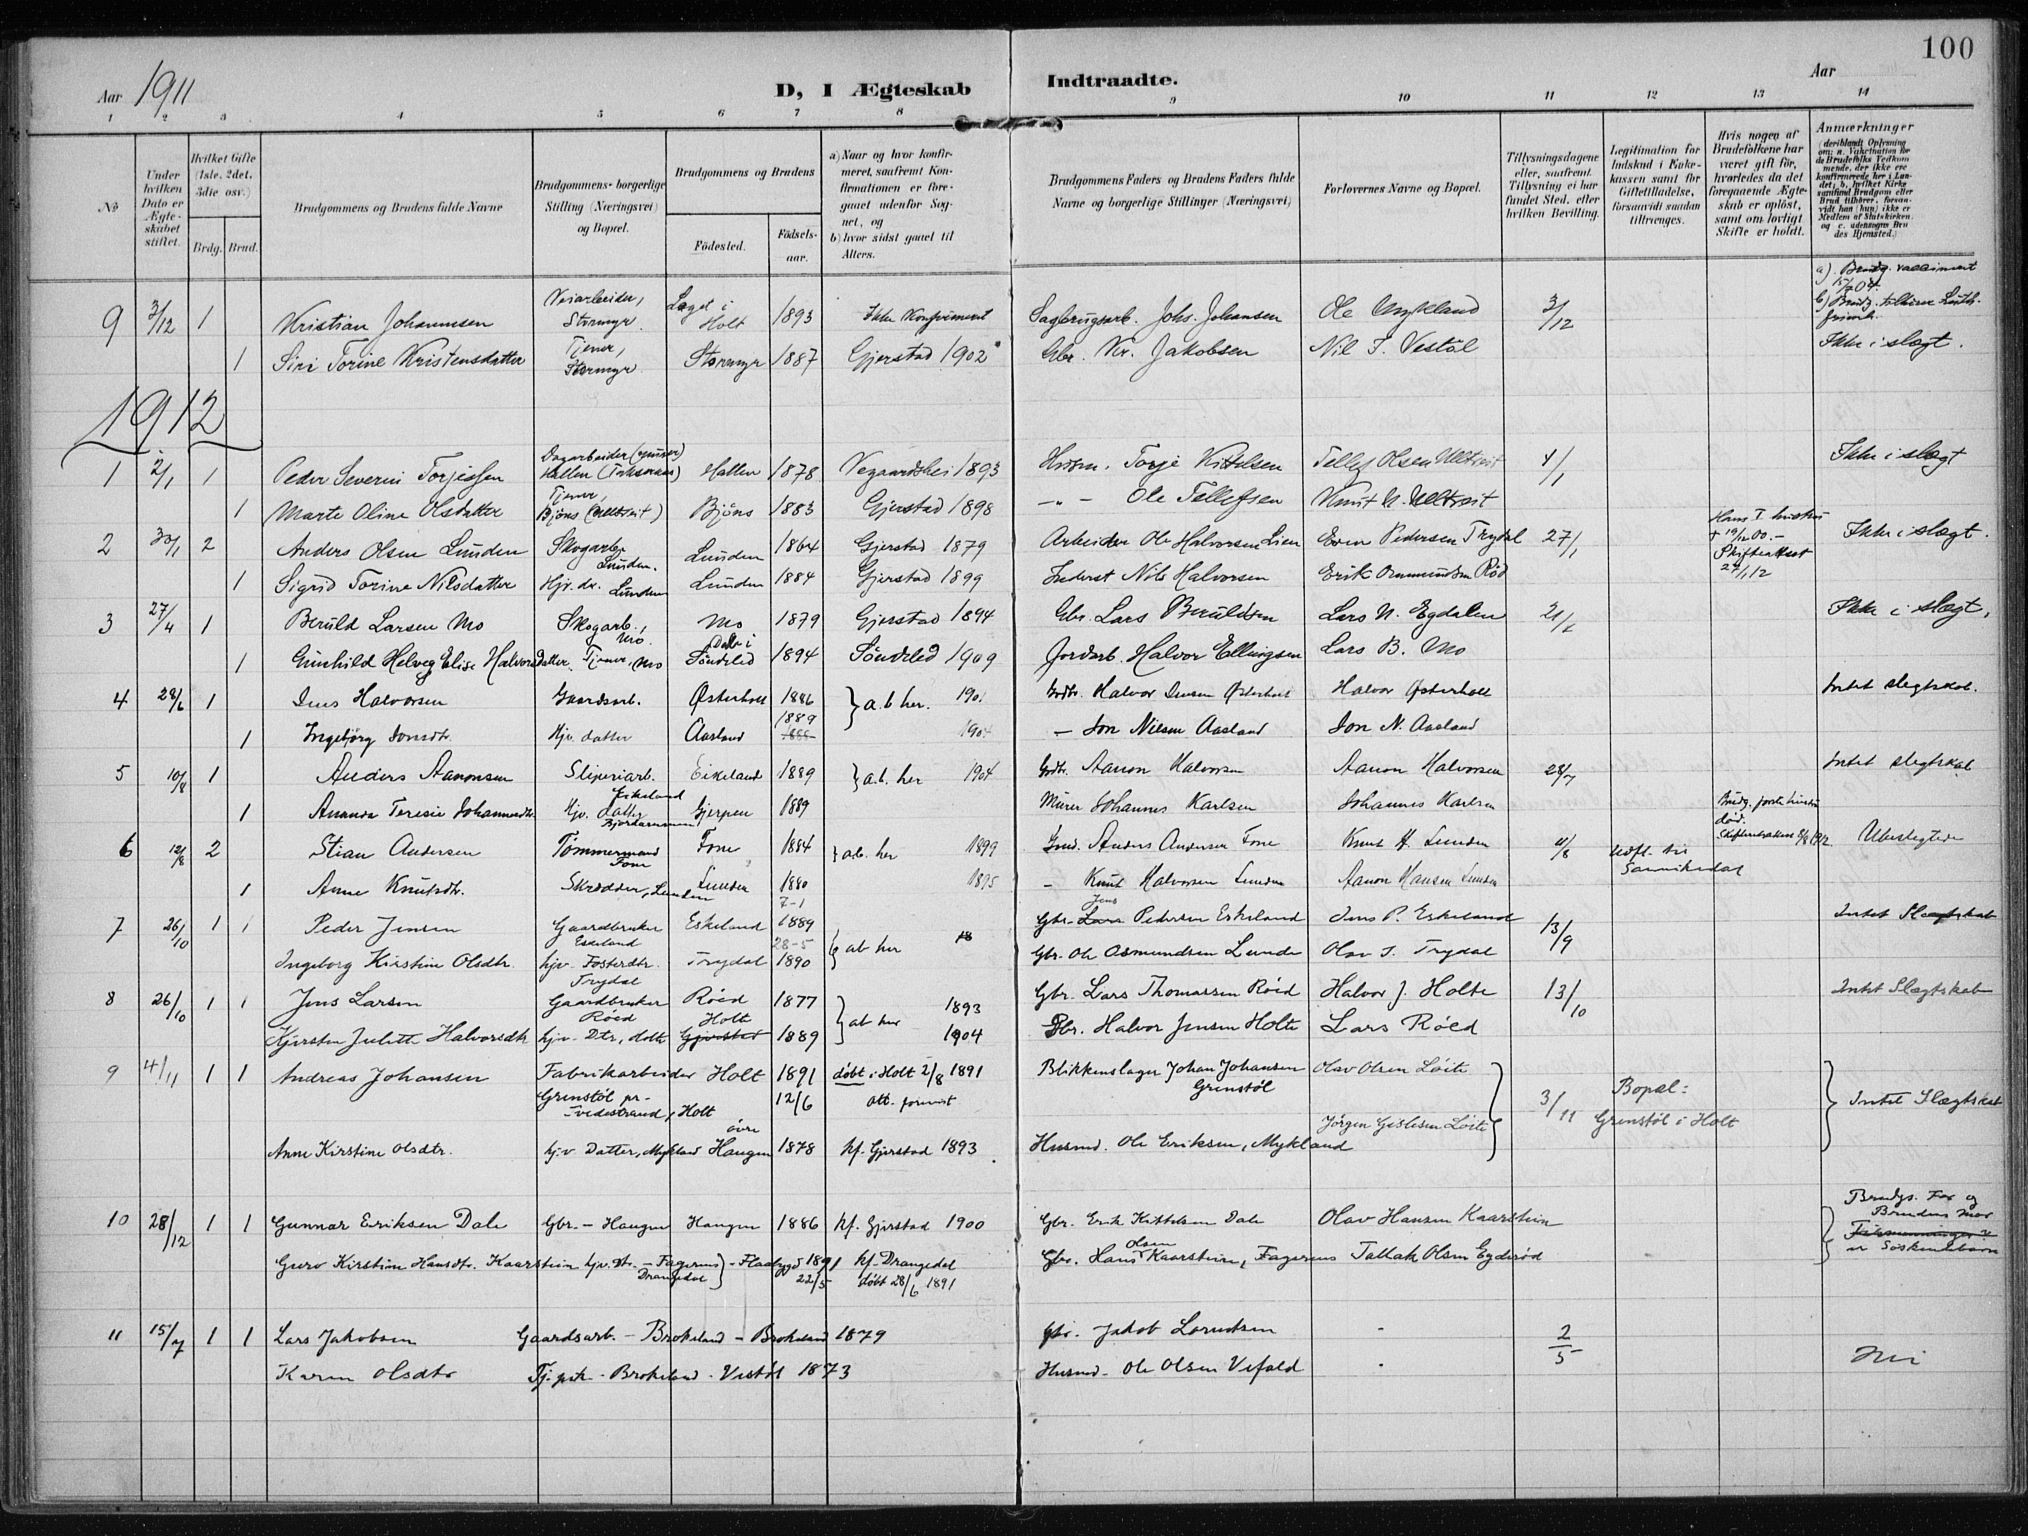 100
Aar 1911
D, I Ægteskab Indtraadte.
Aar
1 2 3 4 5 6 7 8 9 10 11 12 13 14
No
Under hvilken Dato er Ægteskabet stiftet.
Hvilket Gifte (1ste, 2det, 3die osv.)
Brdg. Brud.
Brudgommens og Brudens fulde Navne
Brudgommens borgerlige Stilling (Næringsvei) og Bopæl.
Brudgommens og Brudens
Fødested. Fødselsaar.
a) Naar og hvor konfirmeret, saafremt Konfirmationen er foregaaet udenfor Sognet, og
b) hvor sidst gaaet til Alters.
Brudgommens Faders og Brudens Faders fulde Navne og borgerlige Stillinger (Næringsvei)
Forlovernes Navne og Bopæl.
Tillysningsdagene eller, saafremt Tillysning ei har fundet Sted, efter hvilken Bevilling.
Legitimation for Indskud i Enkekassen samt for Giftetilladelse, forsaavidt saadan tiltrænges.
Hvis nogen af Brudefolkene har været gift før, hvorledes da det foregaaende Ægteskab er opløst, samt om lovligt Skifte er holdt.
Anmærkninger
9 3/12 1 Kristian Johannsen Veiarbeider, Stormyr Laget i Holt 1893 Ikke Konfirmert Sagbrugsarb. Johs. Johansen Ole Mykland 3/12
1 Siri Torine Kristensdatter Tjener, Stormyr Stormyr 1887 Gjerstad 1902 Gbr. Kr. Jakobsen Nil T. Vestøl Ikke i slegt.
1912
1 2/1 1 Peder Severin Torjessen Dagarbeider Hallen 1878 Vegaardshei 1893 Husm. Torje Kittelsen Tellef Olsen 1/1 Ikke i slegt
1 Marte Oline Olsdatter Tjener, Bjöns Bjöns 1883 Gjerstad 1898 -"- Ole Tellefsen Knut
2 2 Anders Olsen Lunden Skogarb. Lunden. Lunden 1864 Gjerstad 1879 Arbeider Ole Halvorsen Lien Even Pedersen Trydal 27/1 Hans I hustru + 19/12 00. - Skifteattest Ikke i slegt.
1 Sigrid Torine Nilsdatter Hjv. dr. Lunden Lunden 1884 Gjerstad 1899 Inderst Nils Halvorsen Erik Osmundsen Röd
3 27/4 1 Beruld Larsen Mo Skogarb., Mo Mo 1879 Gjerstad 1894 Gbr. Lars Beruldsen Lars N. Egdalen Ikke i slegt.
1 Gunhild Helveg Elise Halvorsdatter Tjener, Mo Dale i Söndeled 1894 Söndeled 1909 Jordarb. Halvor Ellingsen Lars B. Mo
4 28/6 1 Jens Halvorsen Gaardsarb. Østerholt 1886 } a.b her. 1901 Gbr. Halvor Jensen Østerholt Halvor Østerholt Intet slegtskab.
1 Ingebjørg Jonsdtr. Hjv. datter Aasland 1889 1904 - Jon Nielsen Aasland Jon N. Aasland
5 10/8 1 Anders Aanonsen Sliperiarb. Eikeland 1889 } a.b. her 1904 Gbr. Aanon Halvorsen Aanon Halvorsen 28/7 Intet slegtskab
1 Amanda Teresie Johannesdtr. Hjv. datter Gjerpen 1889 Murer Johannes Karlsen Johannes Karlsen
6 12/8 2 Stian Andersen Tømmermand Fone Fone 1884 } ab. her 1899 Anders Andersen Fone Knut H. Lunden 4/8 Udfl. til Sannikedal Brudg. første hustru død. Ubeslegtede
1 Anne Knutsdtr. Skredder, Lunden Lunden 1880 1895 - Knut Halvorsen Lunden Aanon Hansen Lunden
7 26/10 1 1 Peder Jensen Gaardbruker Eskeland Eskeland 7-1 1889 } ab her Gbr. Jens Pedersen Eskeland Jens P. Eskeland 13/9 Intet Slegtskab
Ingeborg Kirstine Olsdtr. hjv. Fosterdtr. Trydal Trydal 28-5 1890 Gbr. Ole Osmundsen Lunde Olav T. Trydal
8 26/10 1 1 Jens Larsen Gaardbruker Röed Röed 1877 } ab her 1893 Gbr. Lars Thomassen Röed Halvor J. Holte 13/10 Intet Slegtskab
Kjersten Juliette Halvorsdtr hjv. Dtr, Holte Holte Gjerstad 1889 1904 Gbr. Halvor Jensen Holte Lars Röed
9 4/11 1 1 Andreas Johansen Fabrikarbeider Grenstøl pr Tvedestrand, Holt Holt 1891 12/6 døbt i Holt 2/8 1891 Blikkenslager Johan Johansen Grenstöl Olav Olsen Löite 3/11 Bopæl: Grenstøl i Holt Intet Slegtskab
Anne Kirstine Olsdtr. hjv. Datter, Mykland øvre Haugen 1878 kf. Gjerstad 1893 Husmd. Ole Eriksen, Mykland Jörgen Gislesen Löite
10 28/12 1 1 Gunnar Eriksen Dale Gbr. - Haugen Haugen 1886 kf. Gjerstad 1900 Gbr. Erik Kittelsen Dale Olav Hansen Kaarstein Brudgs. Far og Brudens Mor er Søskendebørn
Guro Kirstine Hansdtr. Kaarstein hjv. dtr. - Fagernes Drangedal } - Flaabygd 1891 22/5 kf. Drangedal døbt 28/6 1891 Gbr. Hans Olsen Kaarstein, Fagernes Tallak Olsen Egderød
11 15/7 1 1 Lars Jakobsen Gaardsarb. - Brokeland - Brokeland 1879 Gbr. Jakob Larsen - 2/5
Karen Olsdtr Tj.pik - Brokeland - Vestøl 1873 Husmd. Ole Olsen Vefald - Nei